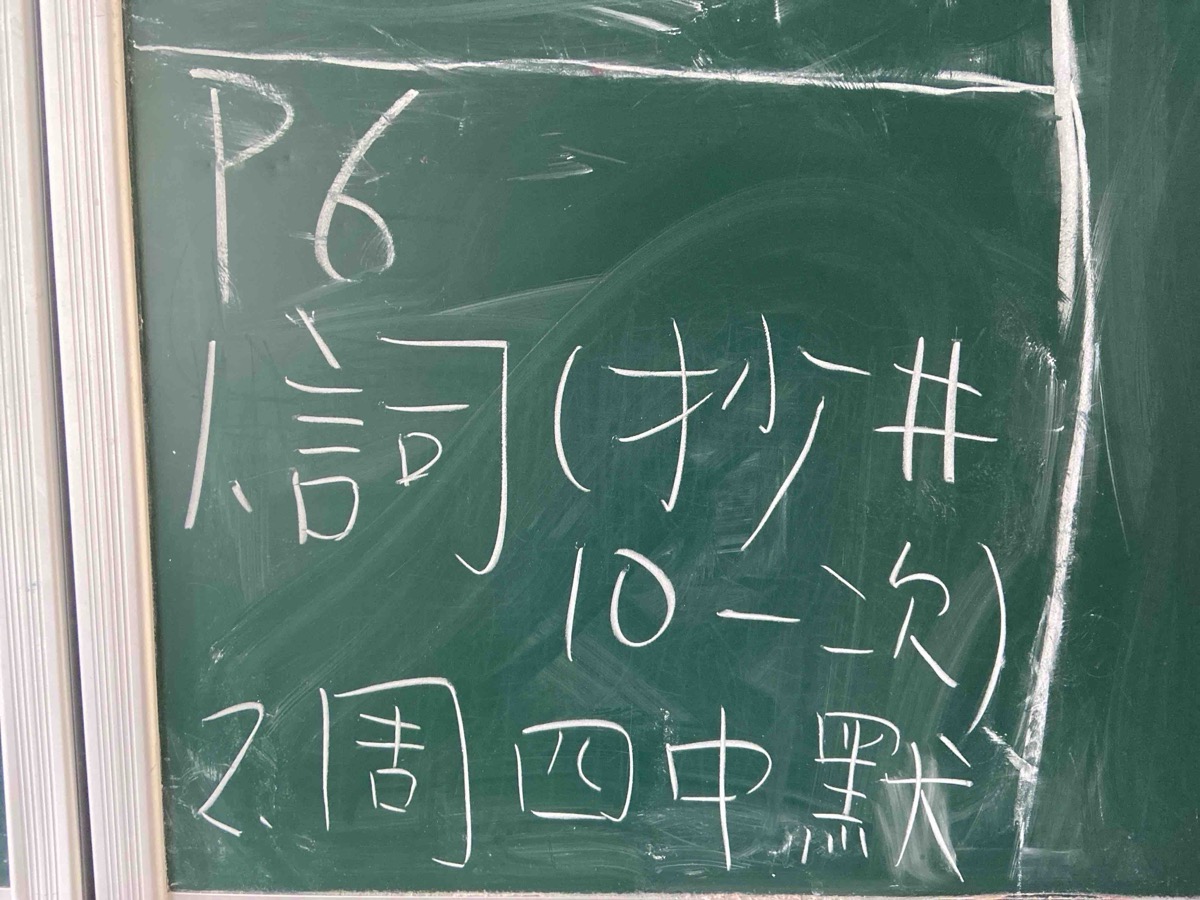 P6
1. 詞 (抄#
10一次)
2. 周四中默